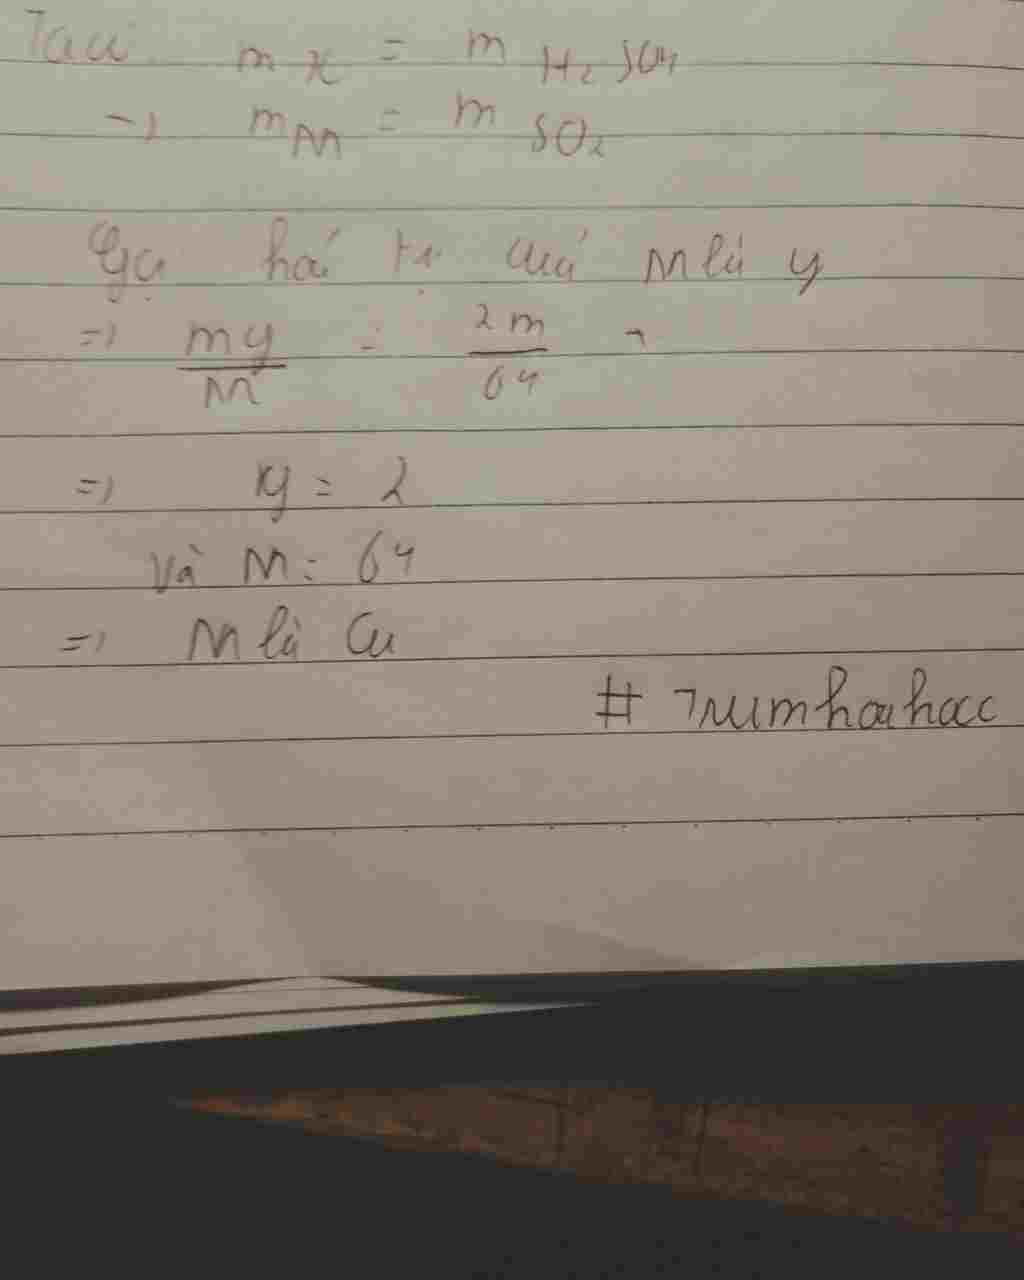 Ta có m X = m H₂SO₄
→ m M = m SO₂
Gọi hoá trị của M là y
=> my/M = 2m/64
=> y = 2
Và M = 64
=> M là Cu
# Trumhoahocc